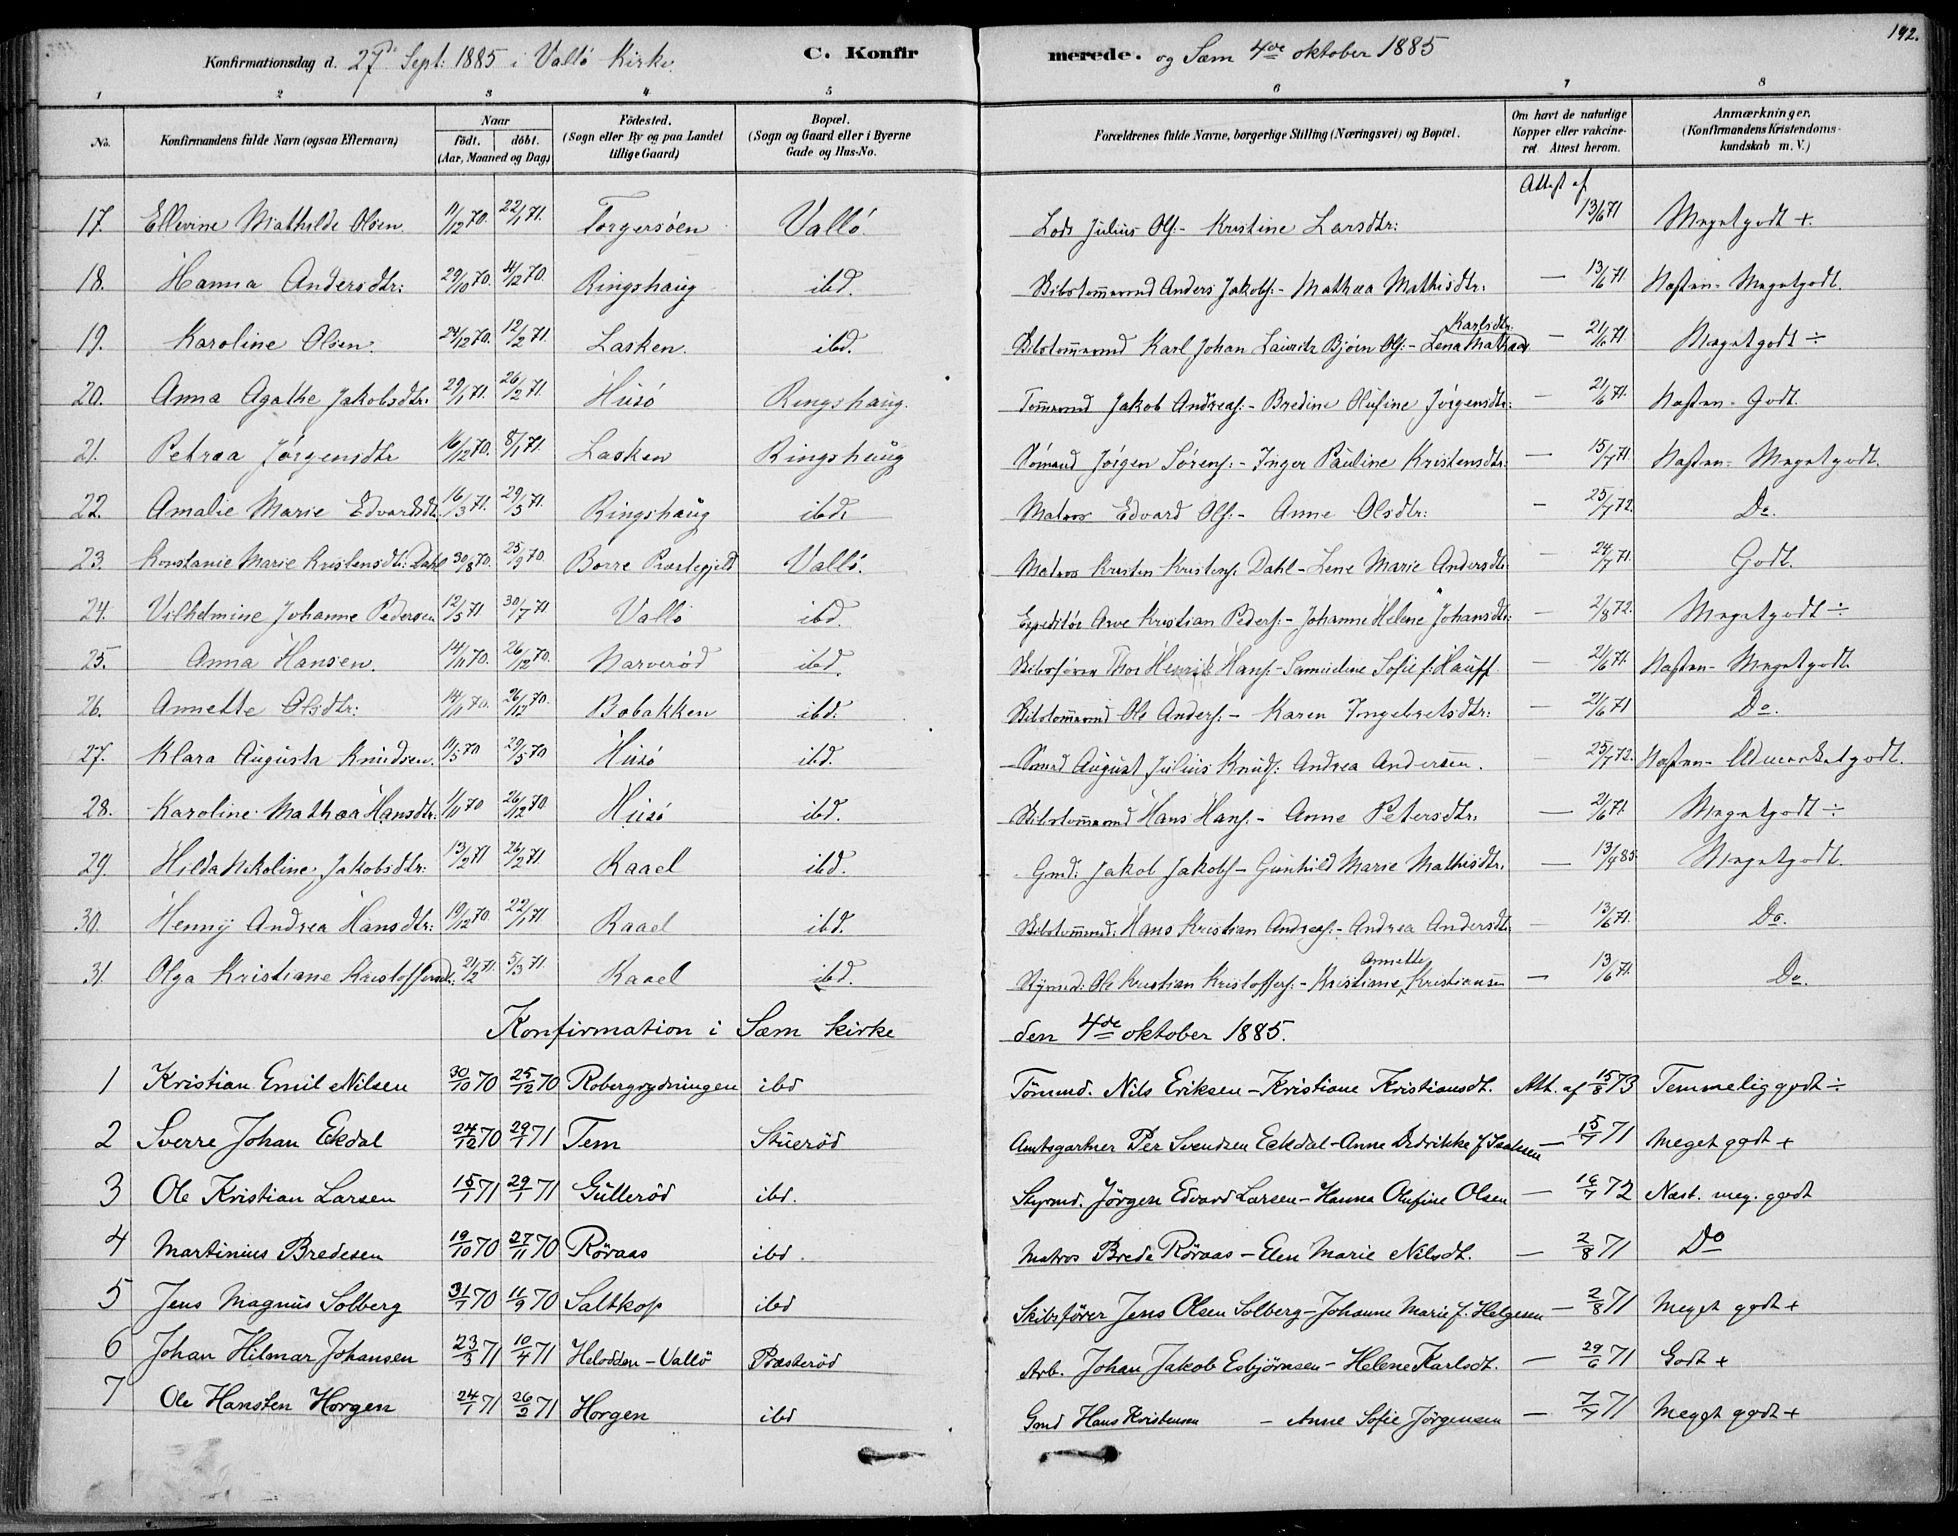 192.
Konfirmationsdag d. 27de Sept. 1885 i Vallö Kirke. C. Konfirmerede. og Sæm 4de oktober 1885
1 2 3 4 5 6 7 8
No. Konfirmandens fulde Navn (ogsaa Efternavn) Naar født. døbt. (Aar, Maaned og Dag) Fødested. (Sogn eller By og paa Landet tillige Gaard) Bopæl. (Sogn og Gaard eller i Byerne Gade og Hus-No. Forældrenes fulde Navne, borgerlige Stilling (Næringsvei) og Bopæl. Om havt de naturlige Kopper eller vakcineret. Attest herom. Anmærkninger, (Konfirmandens Kristendomskundskab m. V.)
17. Ellevine Mathilde Olsen. 11/12 70. 22/1 71. Torgersøen Vallö. Lods Julius Ols:- Kristine Larsdtr: Attest af 13/6 71 Megetgodt +.
18. Hanna Andersdtr: 29/10 70. 4/12 70. Ringshaug ibd. Skibstømmermd Anders Jakobs:- Mathea Mathisdtr: — 13/6 71. Næsten- Megetgodt.
19. Karoline Olsen. 24/12 70. 12/2 71. Lasken. ibd. Skibstømmermd Karl Johan Lauritz Bjørn Ols:- Lena Mathea Karlsdtr. — 21/6 71. Megetgodt ÷
20. Anna Agathe Jakobsdtr: 29/1 71. 26/2 71. Husö Ringshaug. Tømmermd Jakob Andreas:- Bredine Olufine Jörgensdtr: — 21/6 71. Næsten- Godt.
21. Petrea Jörgensdtr 16/12 70. 8/1 71. Lasken Ringshaug Sömand Jörgen Sörens:- Inger Pauline Kristensdtr: — 15/7 71. Næsten- Megetgodt.
22. Amalie Marie Edvardsdt. 16/3 71. 29/5 71. Ringshaug ibd. Matros Edvard Ols:- Anne Olsdtr: — 25/7 72. Do.
23. Konstanse Marie Kristensdt: Dahl 30/8 70. 25/9 70. Borre Præstegjeld Vallö. Matros Kristen Kristens: Dahl- Lene Marie Andersdt: — 24/7 71. Godt.
24. Vilhelmine Johanne Pedersen 12/5 71 30/7 71 Vallö ibd. Expeditör Arve Kristian Peders:- Johanne Helene Johansdtr: — 2/8 72. Megetgodt ÷
25. Anna Hansen. 14/11 70. 26/12 70. Narveröd ibd. Skibsförer Thor Henrik Hans:- Samueline Sofie f: Hauff. — 21/6 71. Næsten- Megetgodt.
26. Annette Olsdtr: 14/11 70. 26/12 70. Bobakken ibd. Skibstømmermd Ole Anders:- Karen Ingebretsdtr: — 21/6 71 Do.
27. Klara Augusta Knudsen. 11/5 70 29/5 70 Husö ibd. Sömd August Julius Knuds: Andrea Andersen. — 25/7 72. Næsten- Udmærketgodt.
28. Karoline Mathea Hansdtr: 1/11 70 26/12 70 Husö ibd. Skibstømmermd Hans Hans:- Anne Petersdtr: — 21/6 71. Megetgodt ÷
29. Hilda Nikoline Jakobsdtr: 13/2 71 26/2 71 Raael ibd. Gmd: Jakob Jakobs- Gunhild Marie Mathisdtr. — 13/9 85. Megetgodt.
30. Henny Andrea Hansdtr: 19/12 70. 22/1 71 Raael ibd. Skibstømmd: Hans Kristian Andreas:- Andrea Andersdt: — 13/6 71. Do.
31. Olga Kristiane Kristoffersdt: 21/2 71. 5/3 71. Raael ibd. Styrmd: Ole Kristian Kristoffers:- Kristiane Annette Kristiansen — 13/6 71. Do.
Konfirmation i Sæm kirke den 4de oktober 1885.
1 Kristian Emil Nilsen 30/10 70 25/12 70 Robergrydningen ibd Tömmd. Nils Eriksen - Kristiane Kristiansdt. Att. af 15/8 73 Temmelig godt ÷
2 Sverre Johan Ekdal 24/12 70 29/1 71 Tem Stueröd Amtsgartner Per Svendsen Eekdal - Anne Didrikke f. — 15/7 71 Meget godt +
3 Ole Kristian Larsen 15/1 71 29/1 71 Gülleröd ibd. Styrmd. Jörgen Edvard Larsen - Hanna Olufine Olsen — 16/7 72 Næst. meg. godt
4 Martinius Bredesen 19/10 70 27/11 70 Röraas ibd. Matros Brede Röraas - Elen Marie Nilsdt. — 2/8 71 Do
5 Jens Magnus Solberg 31/7 70 11/9 70 Saltkop ibd Skibsförer Jens Olsen Solberg - Johanne Marie f. Helgesen — 2/8 71 Meget godt +
6 Johan Hilmar Johansen 23/3 71 10/4 71 Helodden - Vallö Præsteröd Arb. Johan Jakob Esbjörnsen - Helene Karlsdt. — 29/6 71 Godt +
7 Ole Hansten Horgen 24/1 71 26/2 71 Horgen ibd Gmd Hans Kristensen - Anne Sofie Jörgensen — 7/7 71 Meget godt +